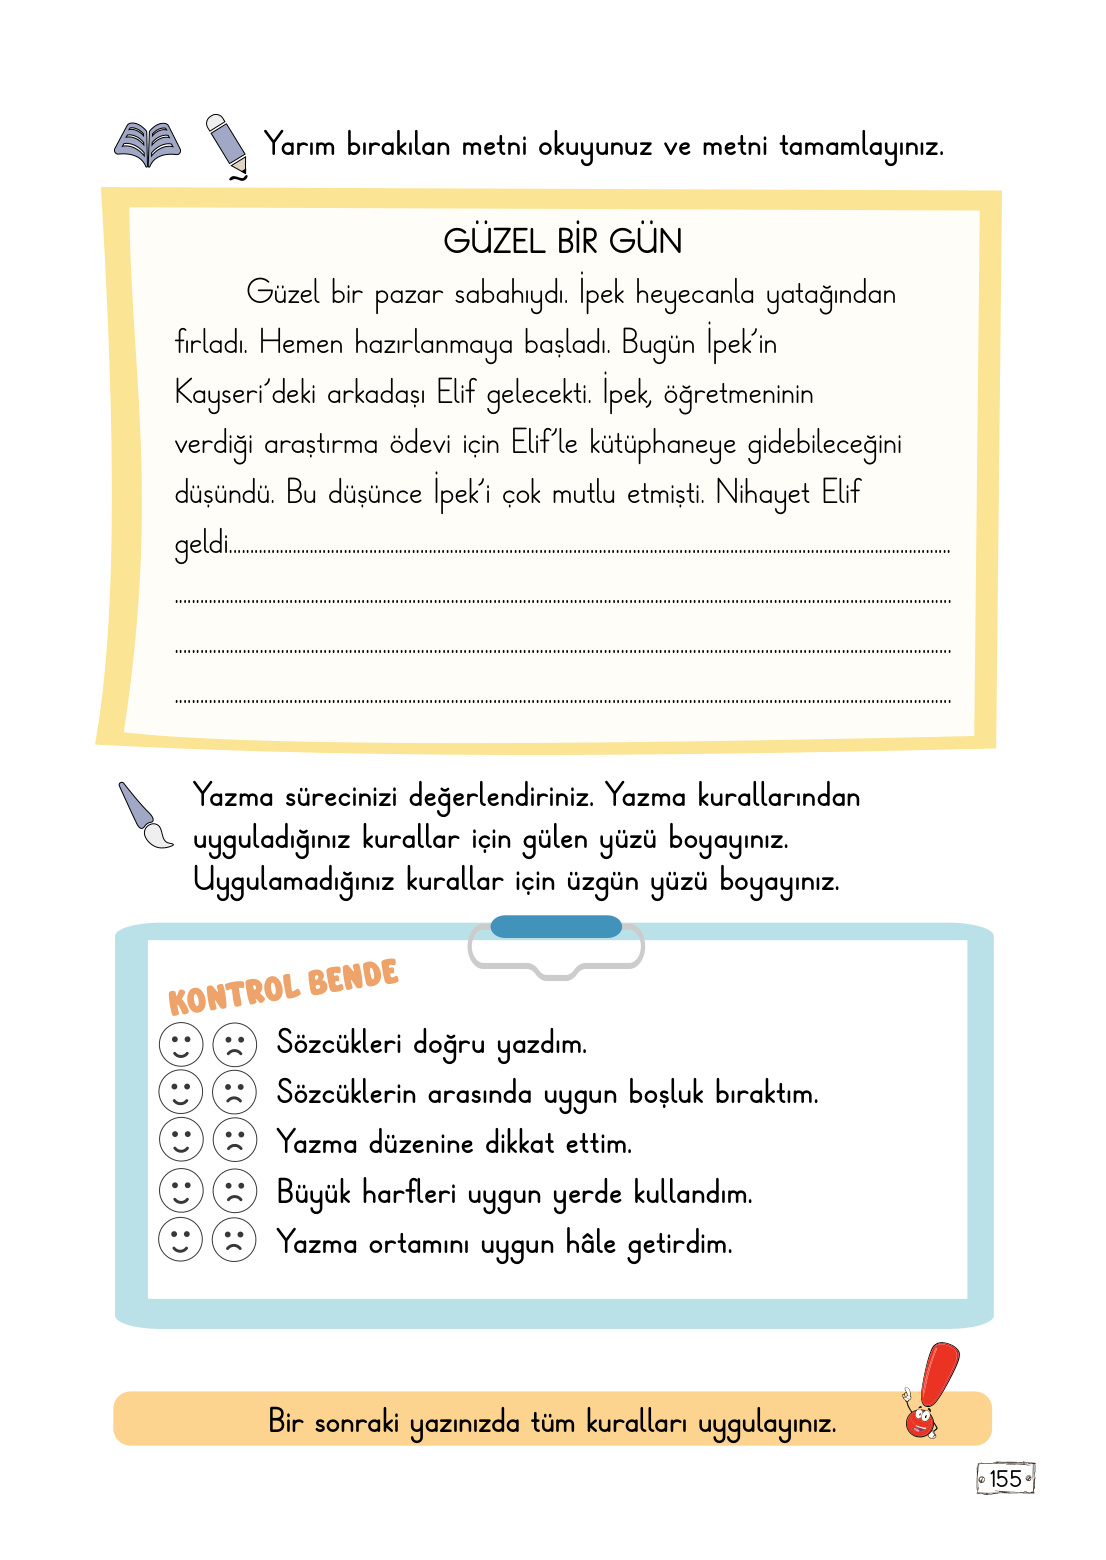 Yarım bırakılan metni okuyunuz ve metni tamamlayınız.
GÜZEL BİR GÜN
Güzel bir pazar sabahıydı. İpek heyecanla yatağından
fırladı. Hemen hazırlanmaya başladı. Bugün İpek’in
Kayseri’deki arkadaşı Elif gelecekti. İpek, öğretmeninin
verdiği araştırma ödevi için Elif’le kütüphaneye gidebileceğini
düşündü. Bu düşünce İpek’i çok mutlu etmişti. Nihayet Elif
geldi
Yazma sürecinizi değerlendiriniz. Yazma kurallarından
uyguladığınız kurallar için gülen yüzü boyayınız.
Uygulamadığınız kurallar için üzgün yüzü boyayınız.
KONTROL BENDE
Sözcükleri doğru yazdım.
Sözcüklerin arasında uygun boşluk bıraktım.
Yazma düzenine dikkat ettim.
Büyük harfleri uygun yerde kullandım.
Yazma ortamını uygun hâle getirdim.
Bir sonraki yazınızda tüm kuralları uygulayınız.
155